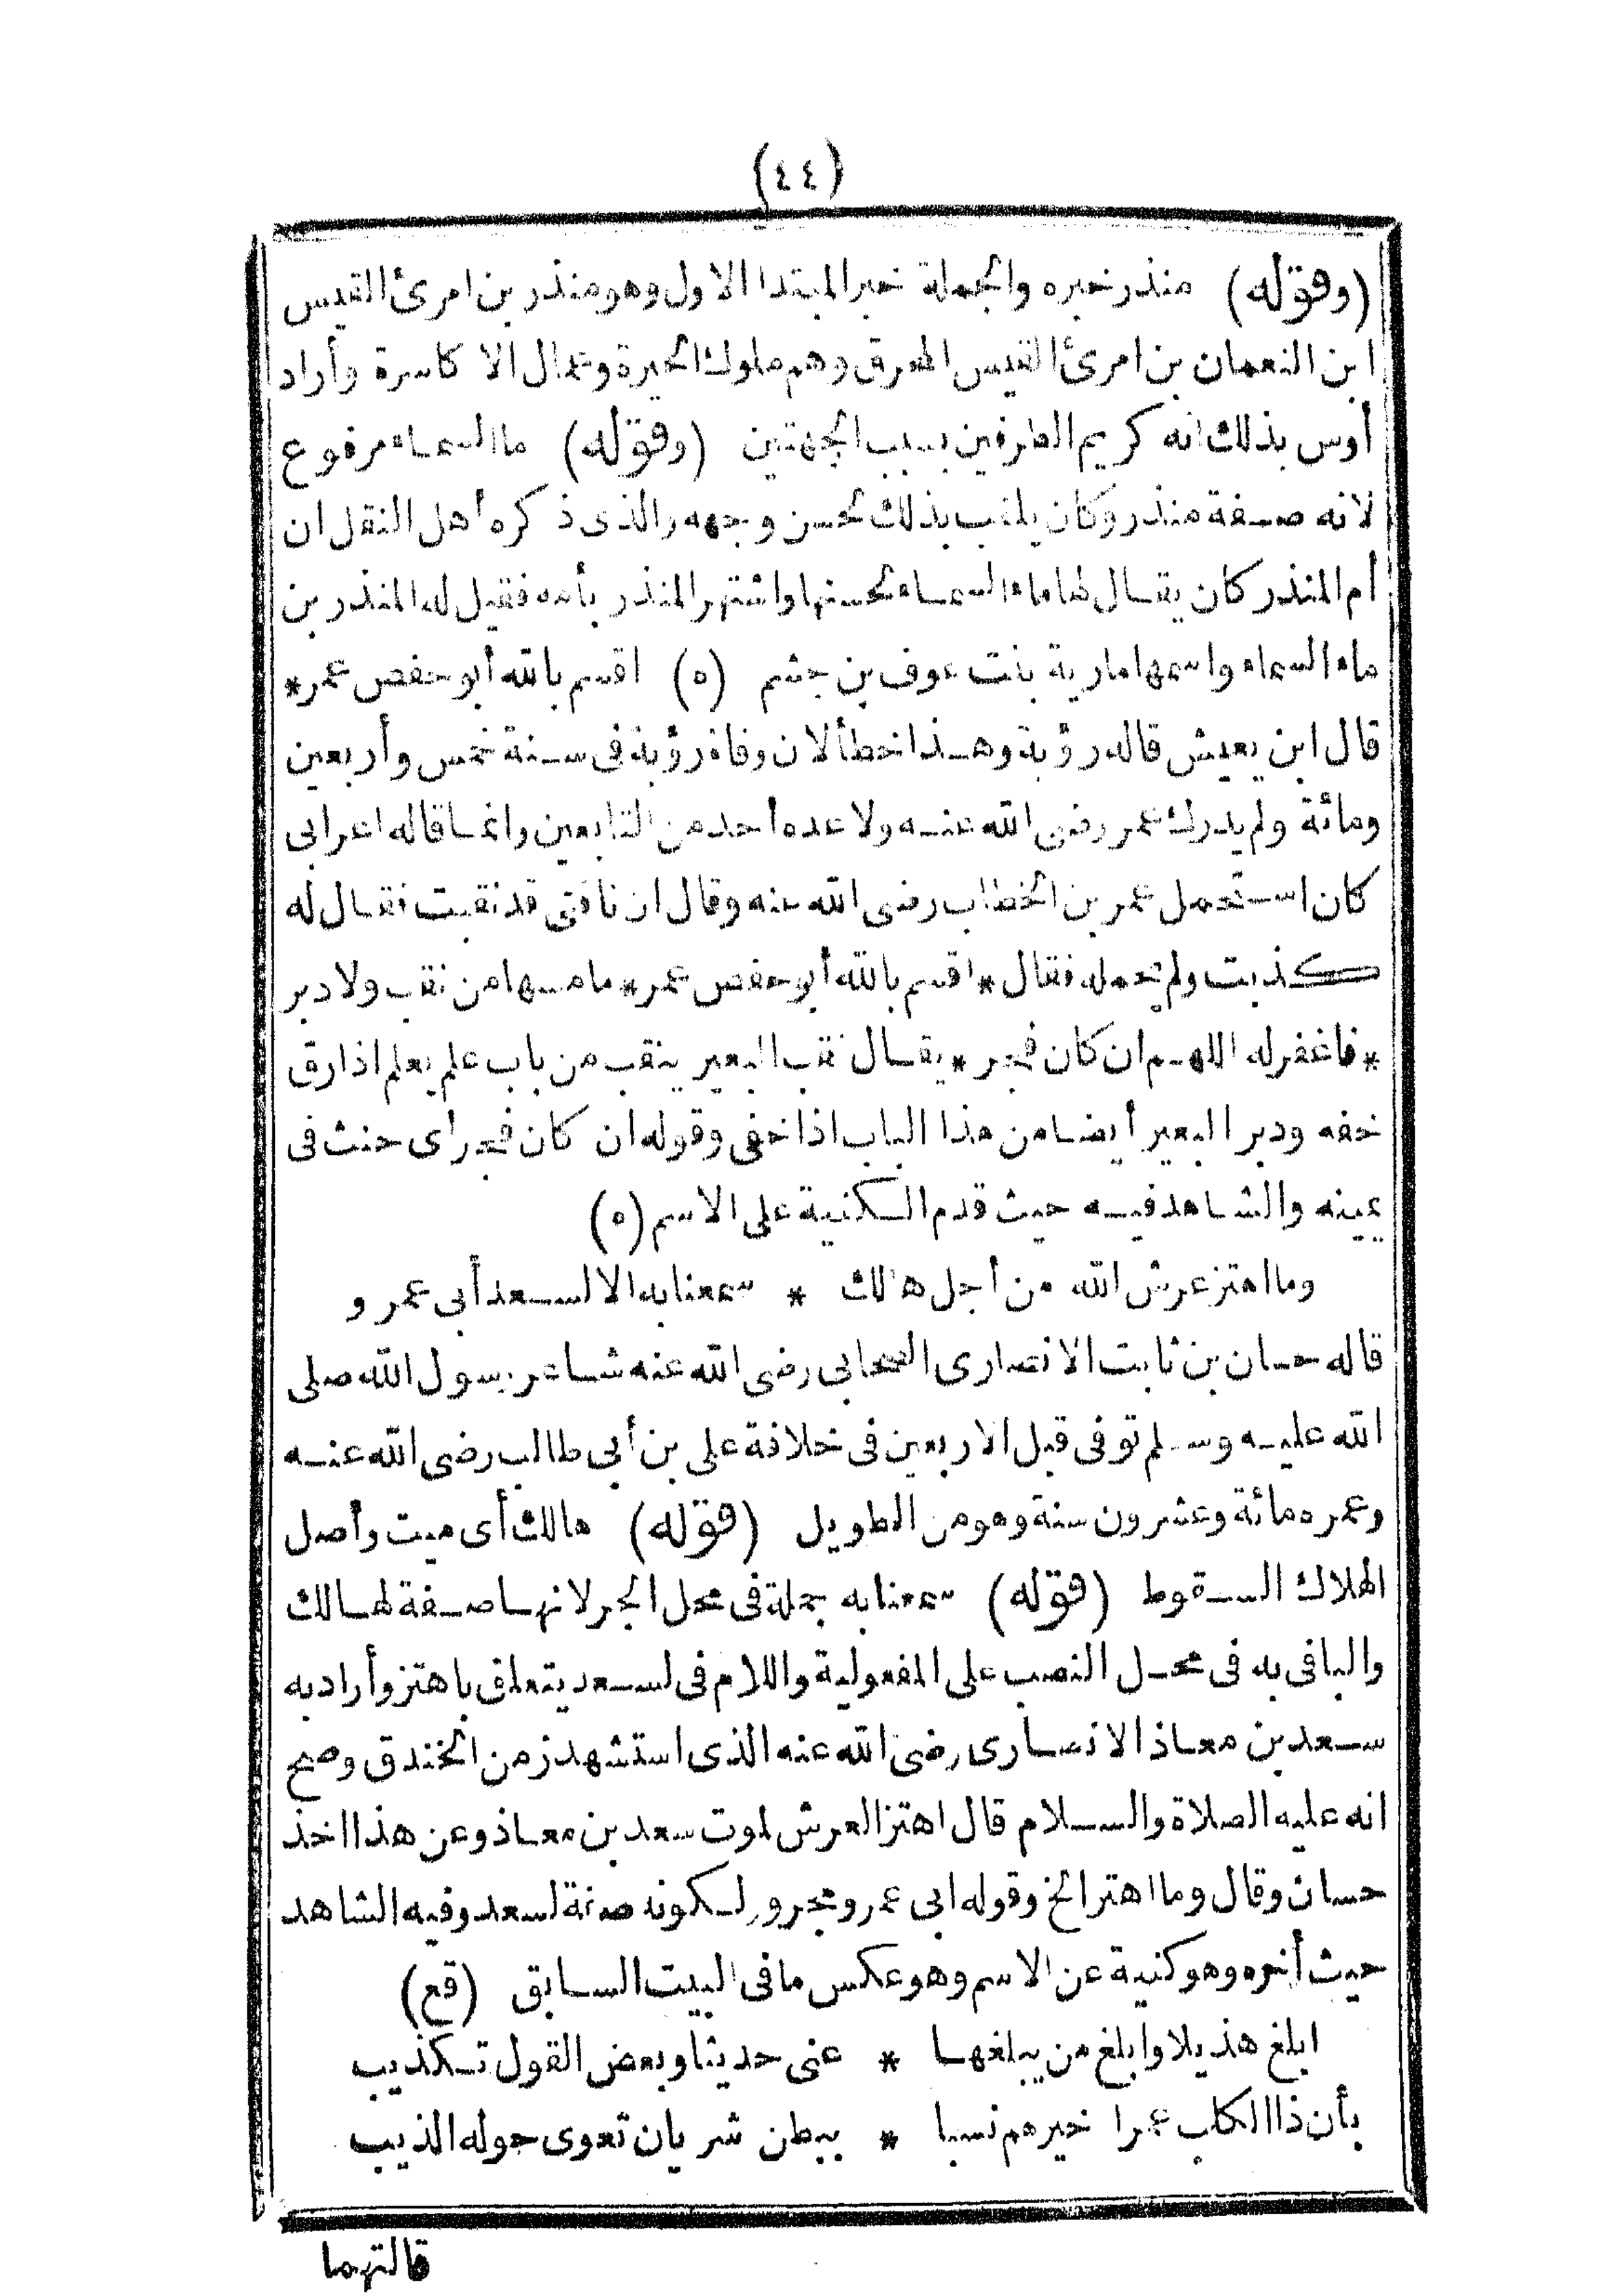 (٤٤)
(وقوله) منذر خبره والجملة خبر المبتدا الاول وهو منذر بن امرئ القيس
ابن النعمان بن امرئ القيس المحرق وهم ملوك الحيرة وعمال الا كاسرة وأراد
أوس بذلك انه كريم الطرفين بسبب الجهتين (وقوله) ماالسماء مرفوع
لانه صفة منذر وكان يلقب بذلك لحسن وجهه والذى ذكره أهل النقل ان
أم المنذر كان يقال لها ماء السماء لحسنها واشتهر المنذر بأمه فقيل له المنذر بن
ماء السماء واسمها مارية بنت عوف بن جشم (ه) اقسم بالله أبو حفص عمر*
قال ابن يعيش قاله رؤبة وهذا خطأ لان وفاة رؤبة فى سنة خمس وأربعين
ومائة ولم يدرك عمر رضى الله عنه ولا عده أحد من التابعين وانما قاله اعرابى
كان استحمل عمر بن الخطاب رضى الله عنه وقال ان ناقتى قد نقبت فقال له
كذبت ولم يحمله فقال * اقسم بالله أبو حفص عمر * ما مسها من نقب ولا دبر
* فاغفر له اللهم ان كان فجر * يقال نقب البعير ينقب من باب علم يعلم اذا رق
خفه ودبر البعير أيضا من هذا الباب اذا خفى وقوله ان كان فجر اى حنث فى
يمينه والشاهد فيه حيث قدم الكنية على الاسم (ه)
وما اهتز عرش الله من أجل هالك * سمعنا به الا لسعد أبى عمرو
قاله حسان بن ثابت الانصارى الصحابى رضى الله عنه شاعر رسول الله صلى
الله عليه وسلم توفى قبل الاربعين فى خلافة على بن أبى طالب رضى الله عنه
وعمره مائة وعشرون سنة وهو من الطويل (قوله) هالك أى ميت وأصل
الهلاك السقوط (قوله) سمعنا به جملة فى محل الجر لانها صفة لهالك
والباقى به فى محل النصب على المفعولية واللام فى لسعد يتعلق باهتز وأراد به
سعد بن معاذ الانصارى رضى الله عنه الذى استشهد زمن الخندق وصح
انه عليه الصلاة والسلام قال اهتز العرش لموت سعد بن معاذ وعن هذا اخذ
حسان وقال وما اهتز الخ وقوله ابى عمرو مجرور لكونه صفة لسعد وفيه الشاهد
حيث أخره وهو كنية عن الاسم وهو عكس ما فى البيت السابق (قع)
ابلغ هذيلا وابلغ من يبلغها * عنى حديثا وبعض القول تكذيب
بأن ذا الكلب عمرا خيرهم نسبا * ببطن شريان تعوى حوله الذيب
قالتهما